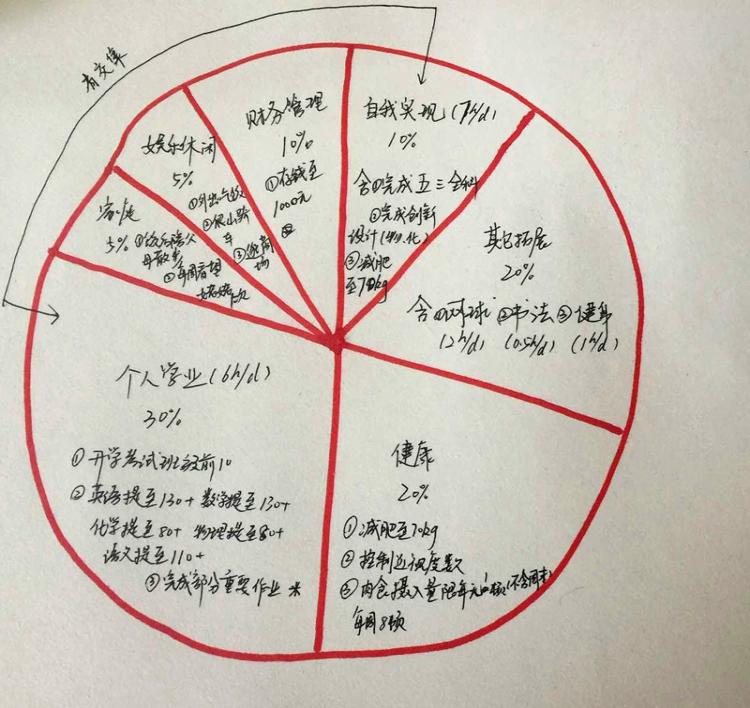 有交集
自我实现(7h/d)
10%
含①完成五三全科
②完成创新
设计(物.化)
③减肥
至70kg
其它拓展
20%
含①网球 ②书法 ③健身
(2h/d) (0.5h/d) (1h/d)
健康
20%
①减肥至70kg
②控制近视度数
③肉食摄入量限
(不含周末)
每周8顿
个人学业(6h/d)
30%
①开学考试班级前10
②英语提至130+ 数学提至130+
化学提至80+ 物理提至80+
语文提至110+
③完成部分重要作业 米
家庭
5% ①饭后陪父
母散步
②每周看望
娱乐休闲
5%
①外出
②爬山骑
车
③逛商
场
财务管理
10%
①存钱至
1000元